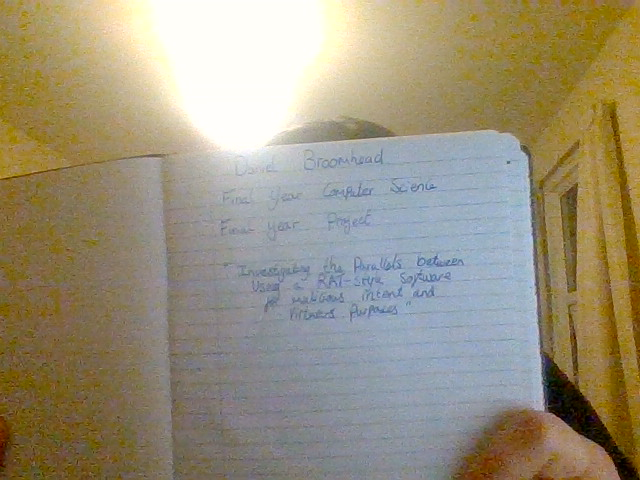 Daniel Broomhead
Final year Computer Science
Final year Project
"Investigating the Parallels between
Using a RAT-Style Software
for Malicious intent and
Purposes"